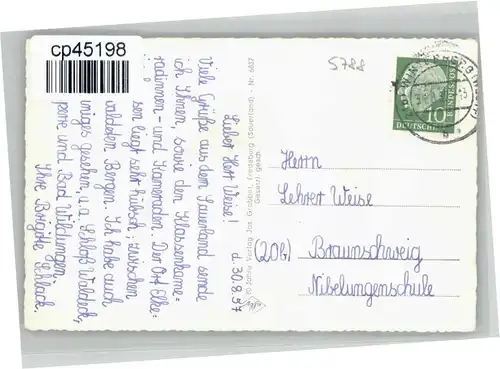 cp45198
5788
d. 30.8.57
Lieber Herr Weise!
Viele Grüße aus dem Sauerland sende
ich Ihnen, sowie den Klassenkame-
radinnen- und Kameraden. Der Ort Elke-
sen liegt sehr hübsch, zwischen
waldeten Bergen. Ich habe auch
iniges gesehen, u.a. Schloß Waldeck,
perre und Bad Wildungen.
Ihre Brigitte Schlack.
Jos. Grobbel, Fredeburg (Sauerland) - Nr. 6637
Gesetzl. gesch.
10
DEUTSCHE
BUNDESPOST
Herrn
Lehrer Weise
(20b) Braunschweig
Nibelungenschule